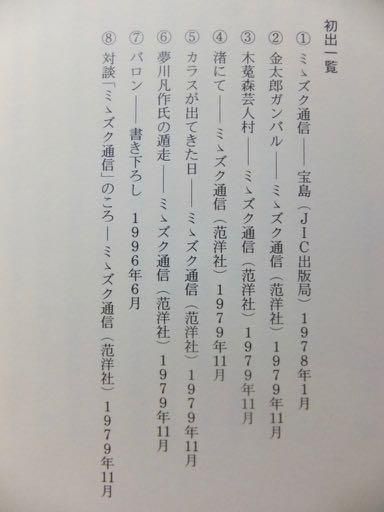 初出一覧
① ミヽズク通信――宝島（JIC出版局）1978年1月
② 金太郎ガンバル――ミヽズク通信（范洋社）1979年11月
③ 木菟森芸人村――ミヽズク通信（范洋社）1979年11月
④ 渚にて――ミヽズク通信（范洋社）1979年11月
⑤ カラスが出てきた日――ミヽズク通信（范洋社）1979年11月
⑥ 夢川凡作氏の遁走――ミヽズク通信（范洋社）1979年11月
⑦ バロン――書き下ろし 1996年6月
⑧ 対談「ミヽズク通信」のころ―ミヽズク通信（范洋社）1979年11月